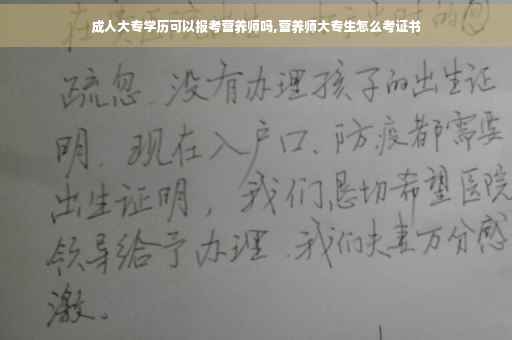 成人大专学历可以报考营养师吗,营养师大专生怎么考证书
疏忽.没有办理孩子的出生证
明.现在入户口、防疫都需要
出生证明，我们恳切希望医院
领导给予办理.我们夫妻万分感
激。